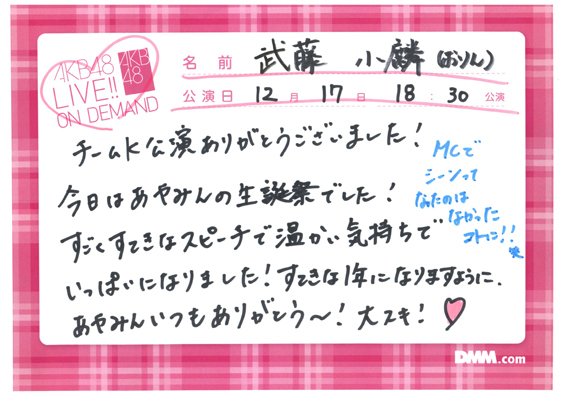 AKB48
LIVE!!
ON DEMAND
AKB
48
名前 武藤 小麟(おりん)
公演日 12月 17日 18:30 公演
チームK公演ありがとうございました!
今日はあやみんの生誕祭でした!
すごくすてきなスピーチで温かい気持ちで
いっぱいになりました!すてきな1年になりますように.
あやみんいつもありがとう〜!大スキ!
MCで
シーンって
なったのは
なかった
コトに!!
DMM.com